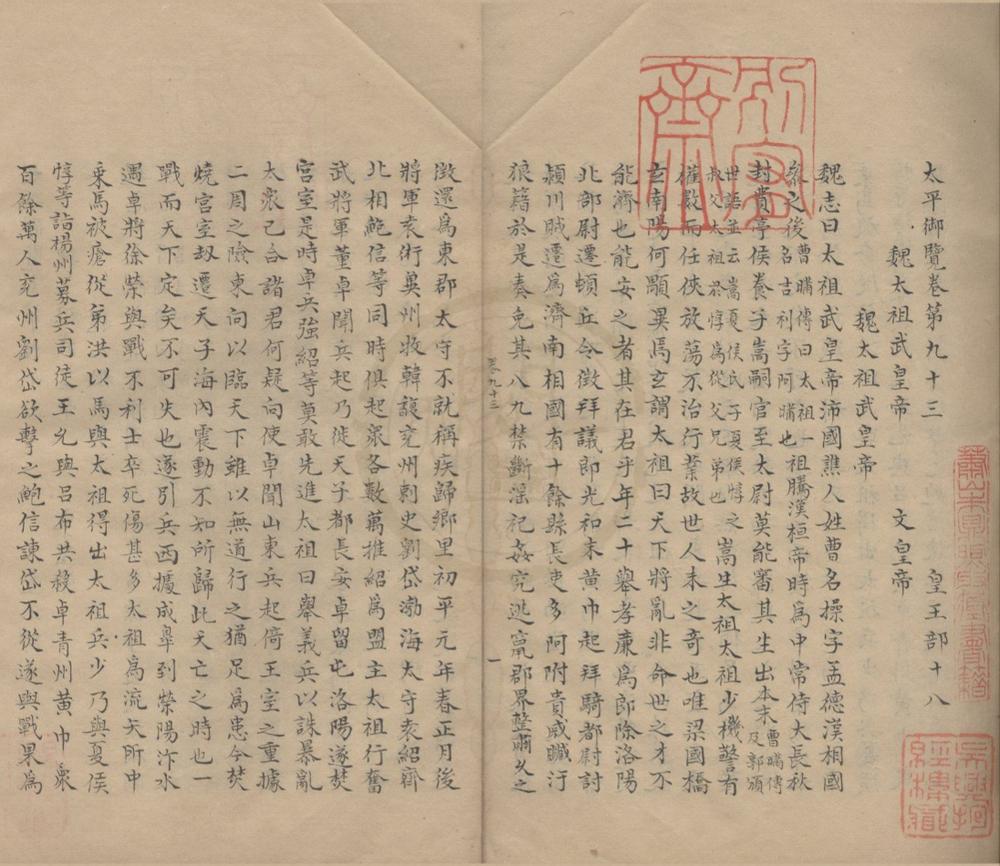 太平御覽卷第九十三　皇王部十八
魏太祖武皇帝　文皇帝
魏太祖武皇帝
魏志曰太祖武皇帝沛國譙人姓曹名操字孟德漢相國
參之後曹瞞傳曰太祖一名吉利字阿瞞也祖騰漢桓帝時為中常侍大長秋
封費亭侯養子嵩嗣官至太尉莫能審其生出本末曹瞞傳及郭頒
世語並云嵩夏侯氏子夏侯惇之叔父太祖於惇為從父兄弟也嵩生太祖太祖少機警有
權數而任俠放蕩不治行業故世人未之奇也唯梁國橋
玄南陽何顒異焉玄謂太祖曰天下將亂非命世之才不
能濟也能安之者其在君乎年二十舉孝廉為郎除洛陽
北部尉遷頓丘令徵拜議郎光和末黄巾起拜騎都尉討
潁川賊遷為濟南相國有十餘縣長吏多阿附貴戚贓汙
狼籍於是奏免其八九禁斷淫祀姦宄逃竄郡界整肅久之
卷九十三
一
徵還為東郡太守不就稱疾歸鄉里初平元年春正月後
將軍袁術兾州牧韓馥兖州刺史劉岱渤海太守袁紹齊
北相鮑信等同時俱起衆各數萬推紹為盟主太祖行奮
武將軍董卓聞兵起乃徙天子都長安卓留屯洛陽遂焚
宮室是時卓兵強紹等莫敢先進太祖曰舉義兵以誅暴亂
太衆已合諸君何疑向使卓聞山東兵起倚王室之重據
二周之險東向以臨天下雖以無道行之猶足為患今焚
燒宮室刼遷天子海內震動不知所歸此天亡之時也一
戰而天下定矣不可失也遂引兵西據成皐到滎陽汴水
遇卓將徐榮與戰不利士卒死傷甚多太祖為流矢所中
乘馬被瘡從弟洪以馬與太祖得出太祖兵少乃與夏侯
惇等詣楊州募兵司徒王允與呂布共殺卓青州黄巾衆
百餘萬人兖州劉岱欲擊之鮑信諫岱不從遂與戰果為